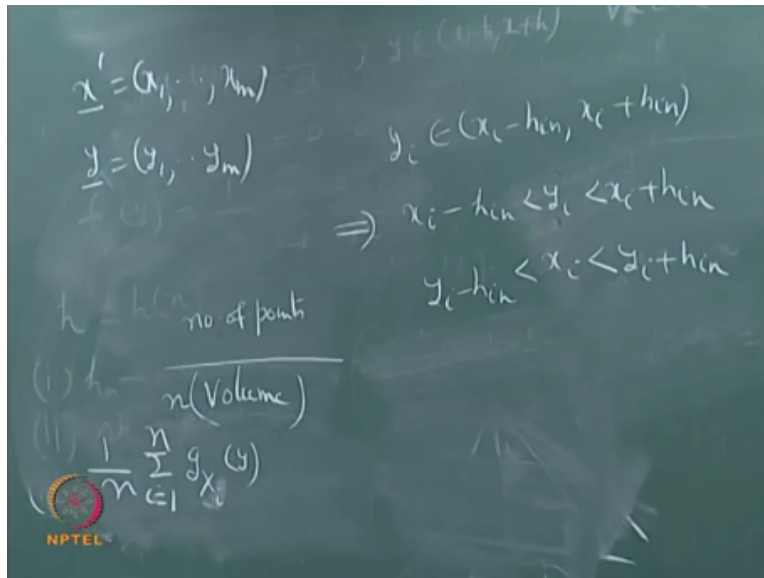 , y ∈ (x-h, x+h) ∀x
x' = (x₁, . . , xₘ)
y = (y₁, . . yₘ)
yᵢ ∈ (xᵢ - hᵢₙ, xᵢ + hᵢₙ)
⇒ xᵢ - hᵢₙ < yᵢ < xᵢ + hᵢₙ
yᵢ - hᵢₙ < xᵢ < yᵢ + hᵢₙ
h h(n)
no. of points
n(Volume)
(i) h
(ii)
1/n ∑ᵢ₌₁ⁿ g_Xᵢ (y)
NPTEL